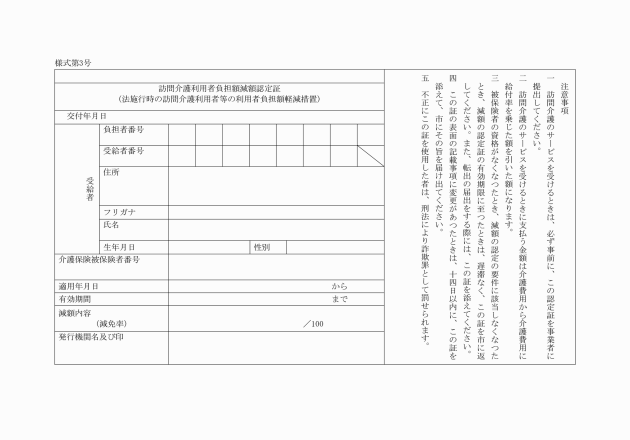 様式第3号
訪問介護利用者負担額減額認定証
（法施行時の訪問介護利用者等の利用者負担額軽減措置）
交付年月日
受給者
負担者番号
受給者番号
住所
フリガナ
氏名
生年月日
性別
介護保険被保険者番号
適用年月日
から
有効期間
まで
減額内容
（減免率）
／100
発行機関名及び印
注意事項
一　訪問介護のサービスを受けるときは、必ず事前に、この認定証を事業者に
提出してください。
二　訪問介護のサービスを受けるときに支払う金額は介護費用から介護費用に
給付率を乗じた額を引いた額になります。
三　被保険者の資格がなくなつたとき、減額の認定の要件に該当しなくなつた
とき、減額の認定証の有効期限に至つたときは、遅滞なく、この証を市に返
してください。また、転出の届出をする際には、この証を添えてください。
四　この証の表面の記載事項に変更があつたときは、十四日以内に、この証を
添えて、市にその旨を届け出てください。
五　不正にこの証を使用した者は、刑法により詐欺罪として罰せられます。